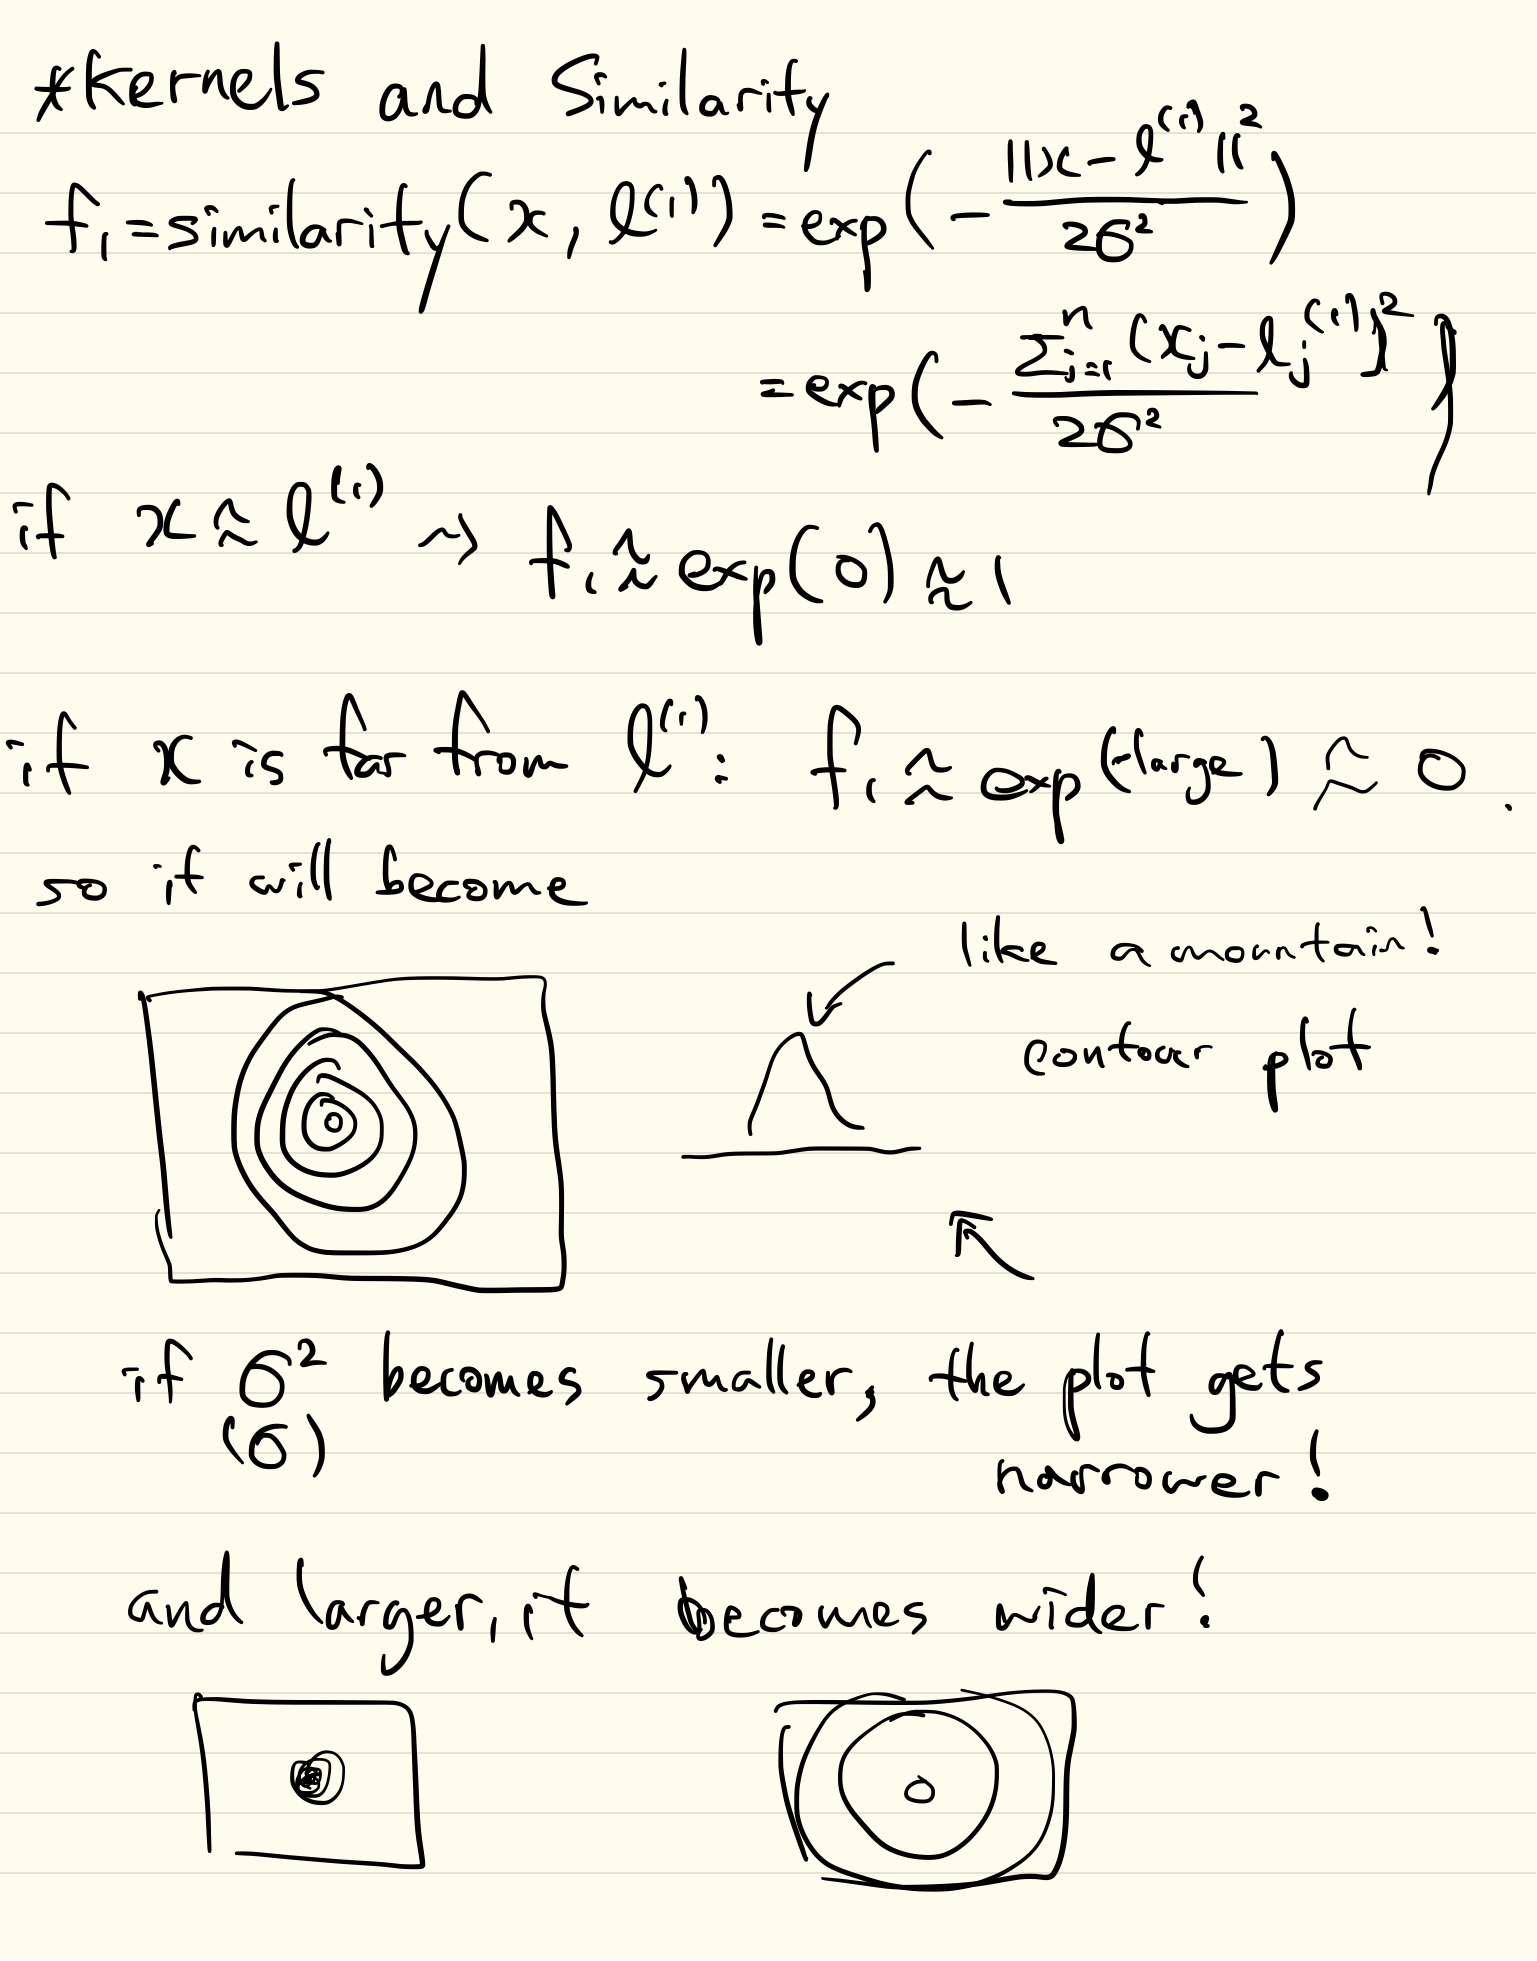 *Kernels and Similarity
f₁ = similarity(x, l⁽¹⁾) = exp(- ||x - l⁽¹⁾||² / 2σ²)
= exp(- Σⁿⱼ₌₁ (xⱼ - lⱼ⁽¹⁾)² / 2σ²)
if x ≈ l⁽¹⁾ → f₁ ≈ exp(0) ≈ 1
if x is far from l⁽¹⁾: f₁ ≈ exp(-large) ≈ 0.
so it will become
like a mountain!
contour plot
if σ² becomes smaller, the plot gets
(σ)
narrower!
and larger, it becomes wider!